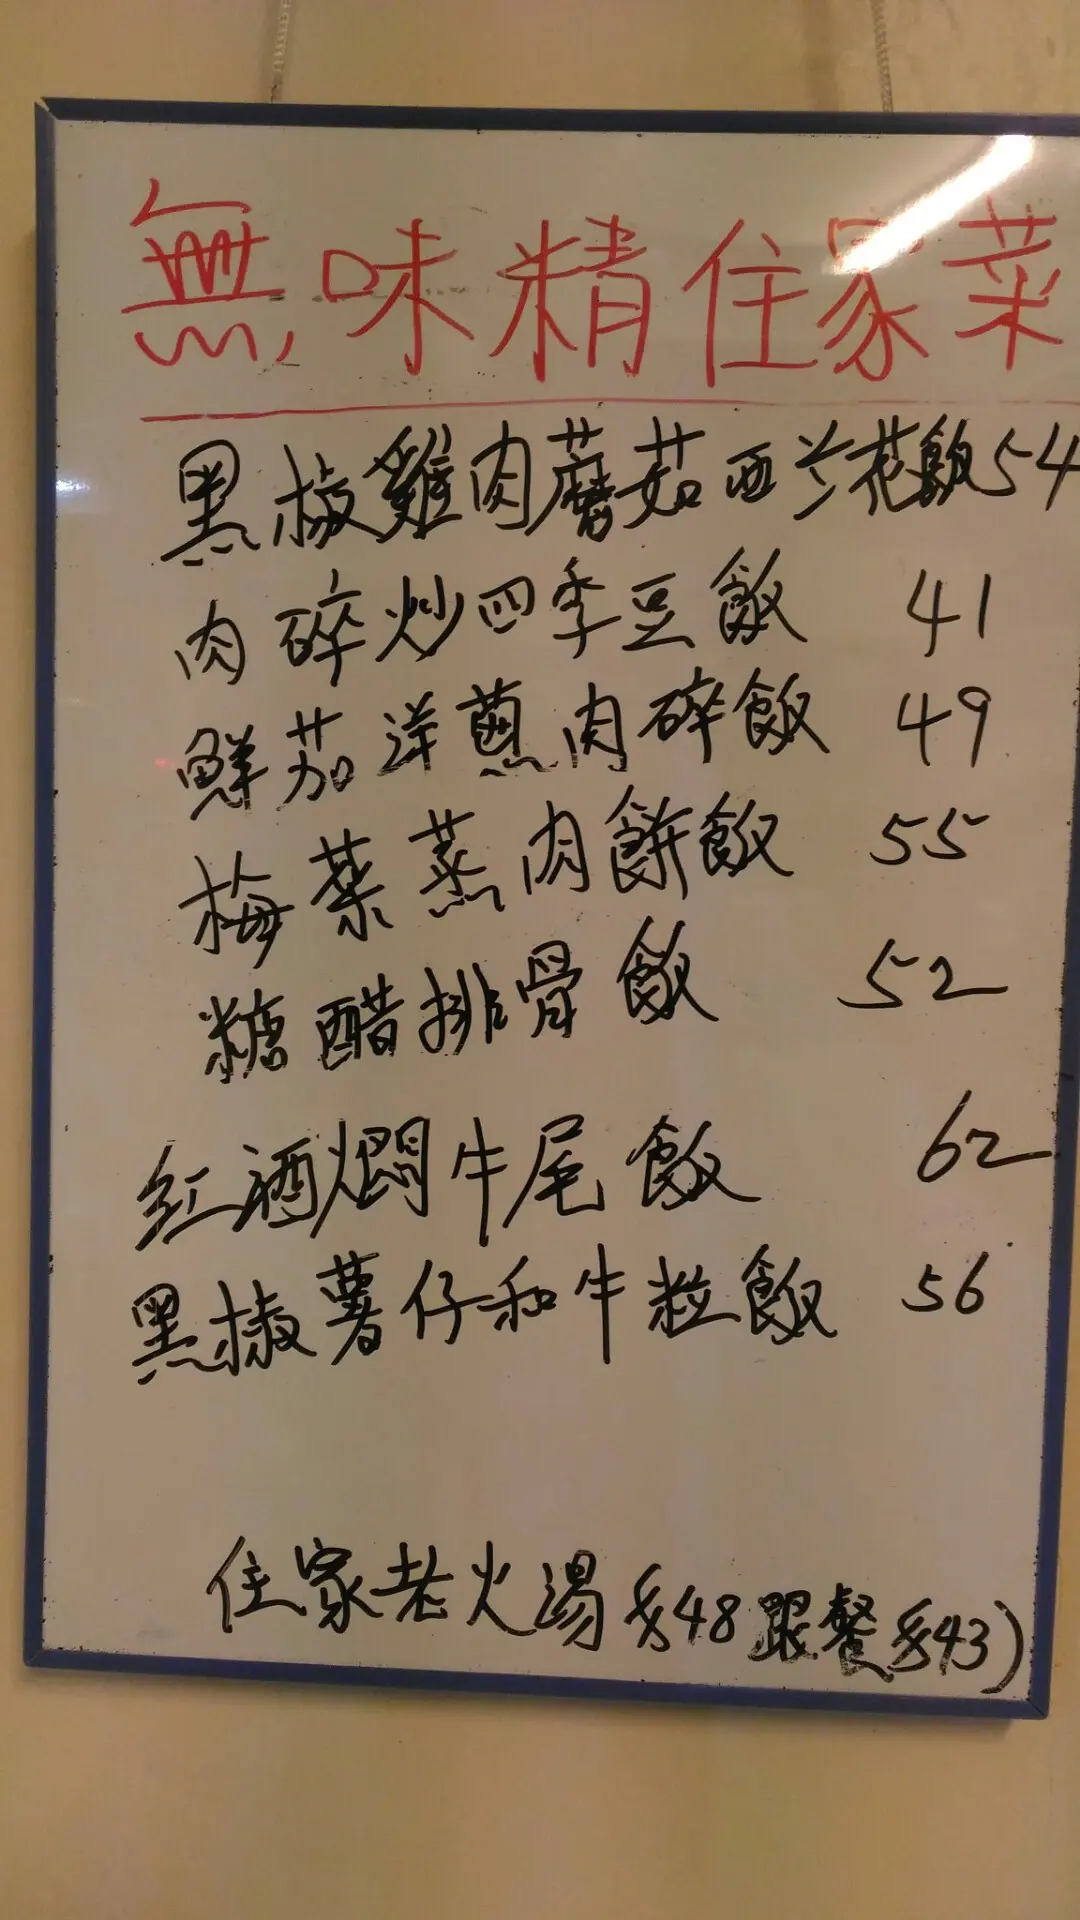 無味精住家菜
黑椒雞肉蘑菇西兰花飯54
肉碎炒四季豆飯 41
鮮茄洋蔥肉碎飯 49
梅菜蒸肉餅飯 55
糖醋排骨飯 52
紅酒焖牛尾飯 62
黑椒薯仔和牛粒飯 56
住家老火湯$48跟餐$43)